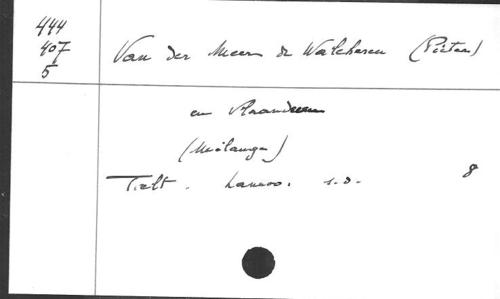 444
407
5
Van der Meer de Walcheren (Pieter)
en Vlaanderen
(Mélanges)
Tielt. Lannoo. s.d. 8